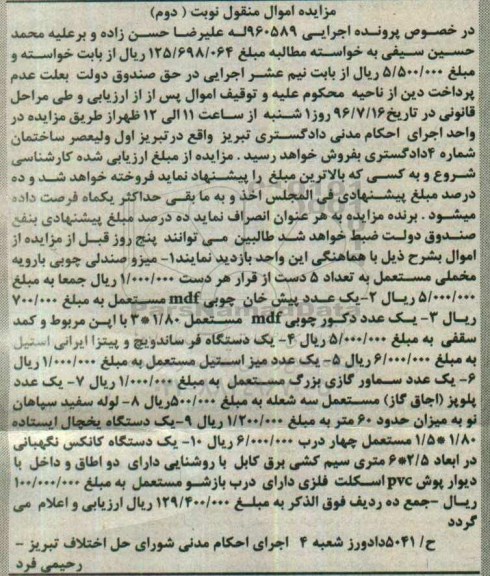 مزایده اموال منقول نوبت ( دوم)
در خصوص پرونده اجرایی ۹۶۰۵۸۹له علیرضا حسن زاده و برعلیه محمد
حسین سیفی به خواسته مطالبه مبلغ ۱۲۵/۶۹۸/۰۶۴ ریال از بابت خواسته و
مبلغ ۵/۵۰۰/۰۰۰ ریال از بابت نیم عشر اجرایی در حق صندوق دولت بعلت عدم
پرداخت دین از ناحیه محکوم علیه و توقیف اموال پس از از ارزیابی و طی مراحل
قانونی در تاریخ ۹۶/۷/۱۶ روز۱ شنبه از ساعت ۱۱ الی ۱۲ ظهراز طریق مزایده در
واحد اجرای احکام مدنی دادگستری تبریز واقع درتبریز اول ولیعصر ساختمان
شماره ۴دادگستری بفروش خواهد رسید . مزایده از مبلغ ارزیابی شده کارشناسی
شروع و به کسی که بالاترین مبلغ را پیشنهاد نماید فروخته خواهد شد و ده
درصد مبلغ پیشنهادی فی المجلس اخذ و به ما بقی حداکثر یکماه فرصت داده
میشود . برنده مزایده به هر عنوان انصراف نماید ده درصد مبلغ پیشنهادی بنفع
صندوق دولت ضبط خواهد شد طالبین می توانند پنج روز قبل از مزایده از
اموال بشرح ذیل با هماهنگی این واحد بازدید نمایند۱- میزو صندلی چوبی بارویه
مخملی مستعمل به تعداد ۵ دست از قرار هر دست ۱/۰۰۰/۰۰۰ ریال جمعا به مبلغ
۵/۰۰۰/۰۰۰ ریال ۲-یک عدد پیش خان چوبی mdf مستعمل به مبلغ ۷۰۰/۰۰۰
ریال ۳- یک عدد دکور چوبی mdf مستعمل ۱/۸۰*۲ با پس مربوط و کمد
سقفی به مبلغ ۵/۰۰۰/۰۰۰ ریال ۴- یک دستگاه فر ساندویچ و پیتزا ایرانی استیل
به مبلغ ۶/۰۰۰/۰۰۰ ریال ۵- یک عدد میز استیل مستعمل به مبلغ ۱/۰۰۰/۰۰۰ ریال
۶- یک عدد سماور گازی بزرگ مستعمل به مبلغ ۱/۰۰۰/۰۰۰ ریال ۷- یک عدد
پلوپز (اجاق گاز) مستعمل سه شعله به مبلغ ۵۰۰/۰۰۰ریال ۸- لوله سفید سپاهان
نو به میزان حدود ۶۰ متر به مبلغ ۱/۲۰۰/۰۰۰ ریال ۹-یک دستگاه یخچال ایستاده
۱/۸۰ *۱/۵ مستعمل چهار درب ۶/۰۰۰/۰۰۰ ریال ۱۰- یک دستگاه کانکس نگهبانی
در ابعاد ۲/۵*۶ متری سیم کشی برق کابل با روشنایی دارای دو اطاق و داخل با
دیوار پوش pvc اسکلت فلزی دارای درب بازشو مستعمل به مبلغ ۱۰۰/۰۰۰/۰۰۰
ریال -جمع ده ردیف فوق الذکر به مبلغ ۱۲۹/۴۰۰/۰۰۰ ریال ارزیابی و اعلام می
گردد
ح/ ۵۰۴۱دادورز شعبه ۴ اجرای احکام مدنی شورای حل اختلاف تبریز -
رحیمی فرد